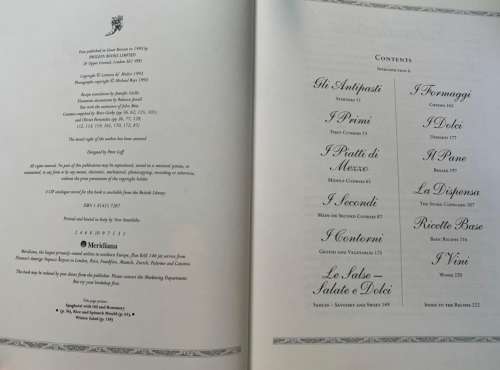 First published in Great Britain in 1993 by
PAVILION BOOKS LIMITED
26 Upper Ground, London SE1 9PD
Copyright © Lorenza de' Medici 1993
Photographs copyright © Michael Boys 1993
Recipe translations by
The moral right of the author has been asserted
Designed by Peter
All rights reserved. No part of this publication may be reproduced, stored in a retrieval system, or
transmitted, in any form or by any means, electronic, mechanical, photocopying, recording or otherwise,
without the prior permission of the copyright holder.
A CIP catalogue record for this book is available from the British Library
ISBN 1 85793
Printed and bound in Italy by New Interlitho
2 4 6 8 10 9 7 5 3 1
Meridiana
Meridiana, the largest privately owned airline in southern Europe, flies BAE 146 jet service from
Florence Airport in London, Rome, Frankfurt, Munich, Zurich, Palermo and Catania.
This book may be ordered by post direct from the publisher. Please contact the Marketing Department.
But try your bookshop first.
This page picture:
Spaghetti with Oil and Rosemary
Rice and Spinach Mould
Winter Salad
CONTENTS
INTRODUCTION 6
Gli Antipasti
STARTERS 31
I Primi
FIRST COURSES 51
I Piatti di
Mezzo
MIDDLE COURSES 65
I Secondi
MAIN OR SECOND COURSES 87
I Contorni
GREENS AND VEGETABLES 125
Le Salse –
Salate e Dolci
SAUCES – SAVOURY AND SWEET 149
I Formaggi
CHEESES 165
I Dolci
DESSERTS 177
Il Pane
BREADS 197
La Dispensa
THE STORE CUPBOARD 207
Ricette Base
BASIC RECIPES 216
I Vini
WINES 220
INDEX TO THE RECIPES 222